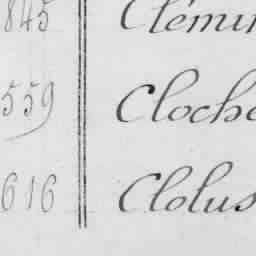 845 Clémin
559 Cloche
616 Clolus